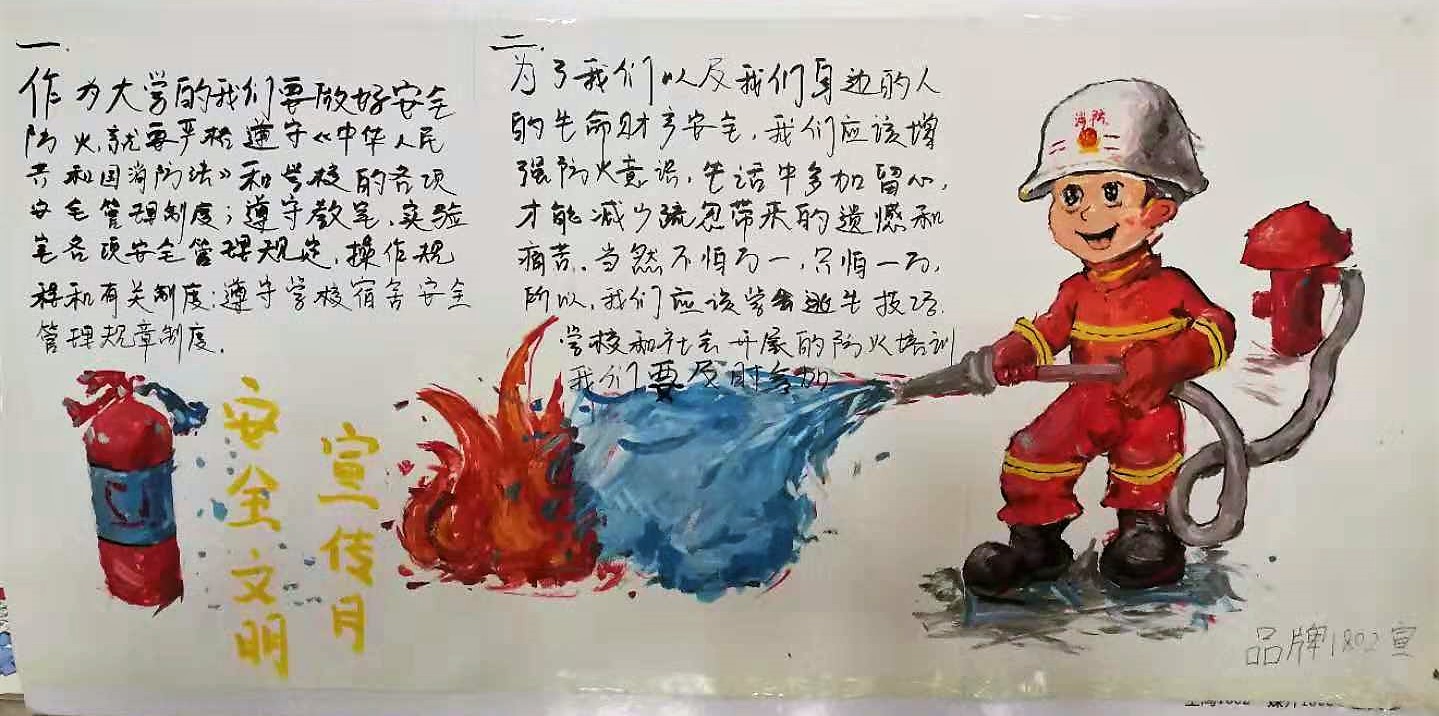 一.
作为大学的我们要做好安全
防火,就要严格遵守《中华人民
共和国消防法》和学校的各项
安全管理制度;遵守教室、实验
室各项安全管理规定,操作规
程和有关制度;遵守学校宿舍安全
管理规章制度.
二.
为了我们以及我们身边的人
的生命财产安全,我们应该增
强防火意识,生活中多加留心,
才能减少疏忽带来的遗憾和
痛苦.当然不怕万一,只怕一万,
所以,我们应该学会逃生技巧.
学校和社会开展的防火培训
我们要及时参加
消防
安全文明
宣传月
品牌1802宣